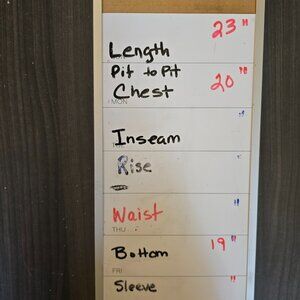 Length 23"
Pit to Pit
Chest 20"
MON
Inseam "
Rise "
Waist "
THU
Bottom 19"
FRI
Sleeve "